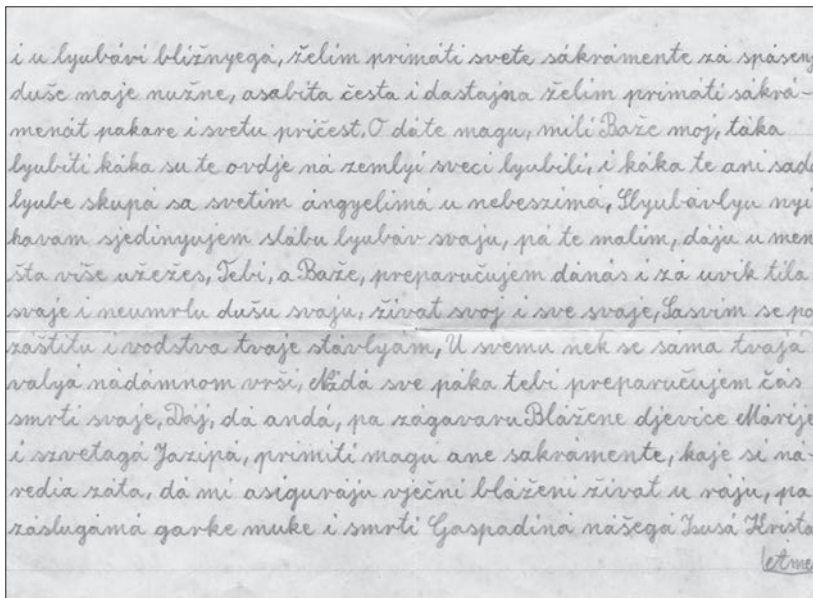 i u lyubávi bližnyegá, želim primáti svete sákrámente zá spásenj
duše maje nužne, asabita česta i dastajna želim primáti sákrá-
menát pakare i svetu pričest. O dáte magu, mili Baže moj, táka
lyubiti káka su te ovdje ná zemlyi sveci lyubili, i káka te ani sadá
lyube skupá sa svetim ángyelimá u nebeszimá, Slyubávlyu nyi
havam sjedinyujem slábu lyubáv svaju, pá te malim, dáju u men
šta više užežes, Tebi, a Baže, preparučujem dánás i zá uvik tila
svaje i neumrlu dušu svaju, život svoj i sve svaje, Sasvim se pa
záštitu i vodstva tvaje stávlyám, U svemu nek se sáma tvajá
valyá nádámnom vrši, Nádá sve páka tebi preparučujem čás
smrti svaje, Dáj, dá andá, pa zágavaru Blážene djevice Márije
i szvetagá Jazipá, primiti magu ane sakrámente, kaje si ná-
redia záta, dá mi asiguráju vječni bláženi živat u ráju, pa
záslugámá garke muke i smrti Gaspadiná nášegá Isusá Krista
Ame